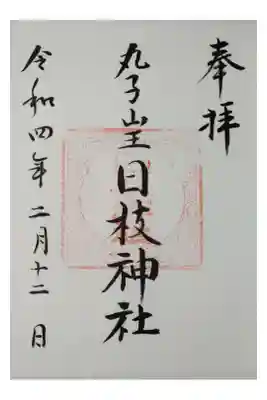 奉拝
丸子山王日枝神社
令和四年二月十二日